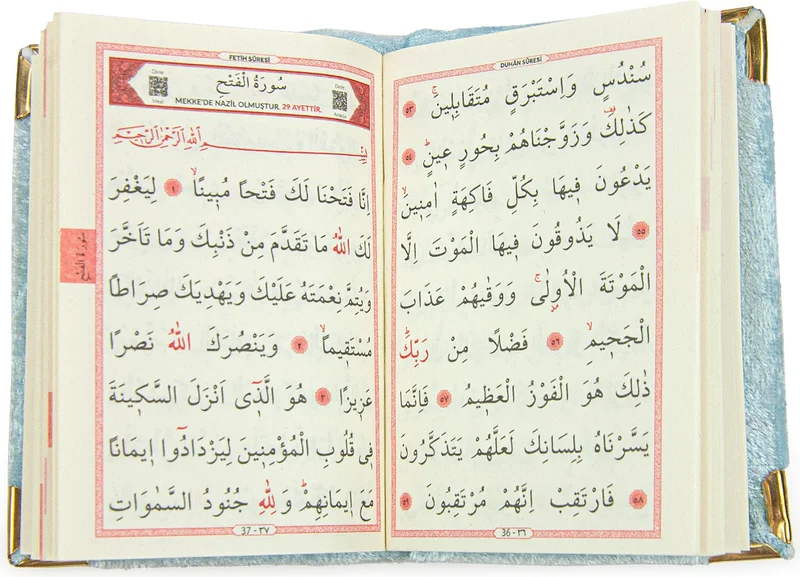 DUHÂN SÛRESİ
سُنْدُسٍ وَاِسْتَبْرَقٍ مُتَقَابِلٖينَۚ ﴿٥٣﴾
كَذٰلِكَ۠ وَزَوَّجْنَاهُمْ بِحُورٍ عٖينٍؕ ﴿٥٤﴾
يَدْعُونَ فٖيهَا بِكُلِّ فَاكِهَةٍ اٰمِنٖينَۙ
﴿٥٥﴾ لَا يَذُوقُونَ فٖيهَا الْمَوْتَ اِلَّا
الْمَوْتَةَ الْاُولٰىۚ وَوَقٰيهُمْ عَذَابَ
الْجَحٖيمِۙ ﴿٥٦﴾ فَضْلًا مِنْ رَبِّكَؕ
ذٰلِكَ هُوَ الْفَوْزُ الْعَظٖيمُ ﴿٥٧﴾ فَاِنَّمَا
يَسَّرْنَاهُ بِلِسَانِكَ لَعَلَّهُمْ يَتَذَكَّرُونَ
﴿٥٨﴾ فَارْتَقِبْ اِنَّهُمْ مُرْتَقِبُونَ ﴿٥٩﴾
36 - ٣٦
FETİH SÛRESİ
سُورَةُ الْفَتْحِ
MEKKE'DE NAZİL OLMUŞTUR. 29 AYETTİR.
بِسْمِ اللّٰهِ الرَّحْمٰنِ الرَّحٖيمِ
اِنَّا فَتَحْنَا لَكَ فَتْحًا مُبٖينًاۙ ﴿١﴾ لِيَغْفِرَ
لَكَ اللّٰهُ مَا تَقَدَّمَ مِنْ ذَنْبِكَ وَمَا تَاَخَّرَ
وَيُتِمَّ نِعْمَتَهُ عَلَيْكَ وَيَهْدِيَكَ صِرَاطًا
مُسْتَقٖيمًاۙ ﴿٢﴾ وَيَنْصُرَكَ اللّٰهُ نَصْرًا
عَزٖيزًا ﴿٣﴾ هُوَ الَّذٖٓى اَنْزَلَ السَّكٖينَةَ
فٖى قُلُوبِ الْمُؤْمِنٖينَ لِيَزْدَادُٓوا اٖيمَانًا
مَعَ اٖيمَانِهِمْؕ وَلِلّٰهِ جُنُودُ السَّمٰوَاتِ
37 - ٣٧
سُورَةُ الفَتْحِ